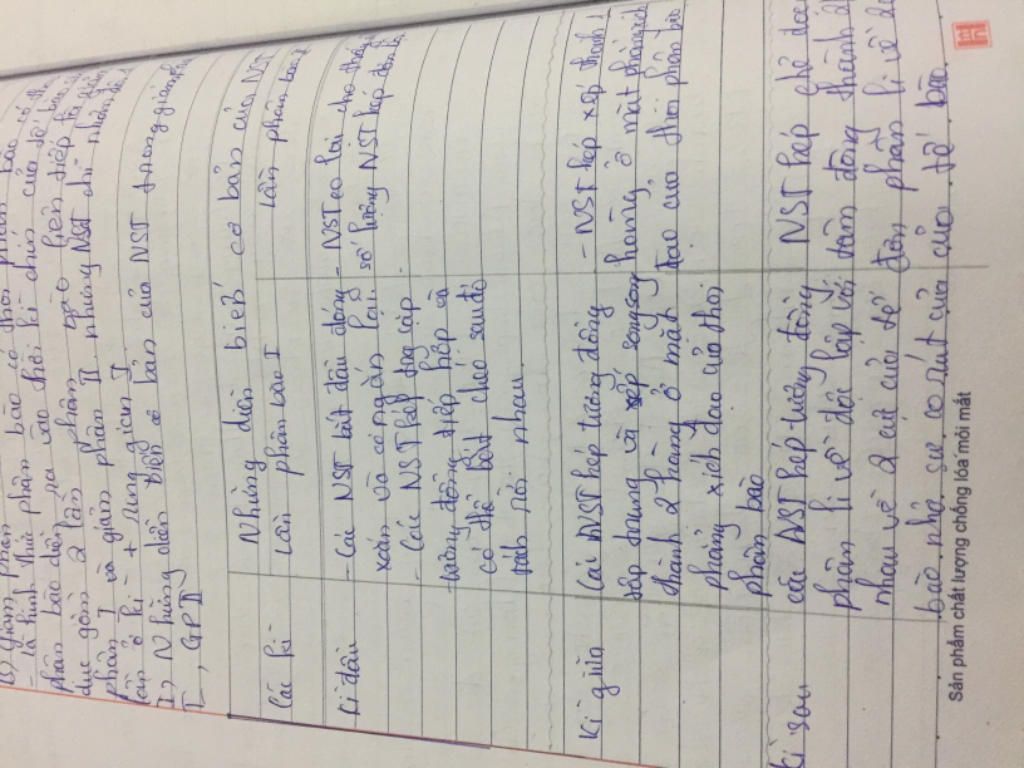 B) Giảm phân
- là hình thức phân bào có thoi phân bào, có
phân bào diễn ra vào thời kì chín của tế bào
dục gồm 2 lần phân bào liên tiếp là giảm
phân I và giảm phân II nhưng NST chỉ nhân đôi
lần ở kì trung gian I
I) Những diễn biến cơ bản của NST trong giảm phân
I, GPII
Các kì
Những diễn biến cơ bản của NST
Lần phân bào I
Lần phân bào II
Kì đầu
- Các NST bắt đầu đóng
xoắn và co ngắn lại
- Các NST kép trong cặp
tương đồng tiếp hợp và
có thể bắt chéo sau đó
tách rời nhau
- NST co lại cho thấy
số lượng NST kép đơn bội
Kì giữa
Các NST kép tương đồng
tập trung và xếp song song
thành 2 hàng ở mặt
phẳng xích đạo của thoi
phân bào
- NST kép xếp thành 1
hàng ở mặt phẳng xích
đạo của thoi phân bào
Kì sau
Các NST kép tương đồng
phân li về độc lập với
nhau về 2 cực của tế
bào nhờ sự co rút của
NST kép chẻ dọc
tâm động thành
đơn phân li về
của tế bào
Sản phẩm chất lượng chống lóa mỏi mắt